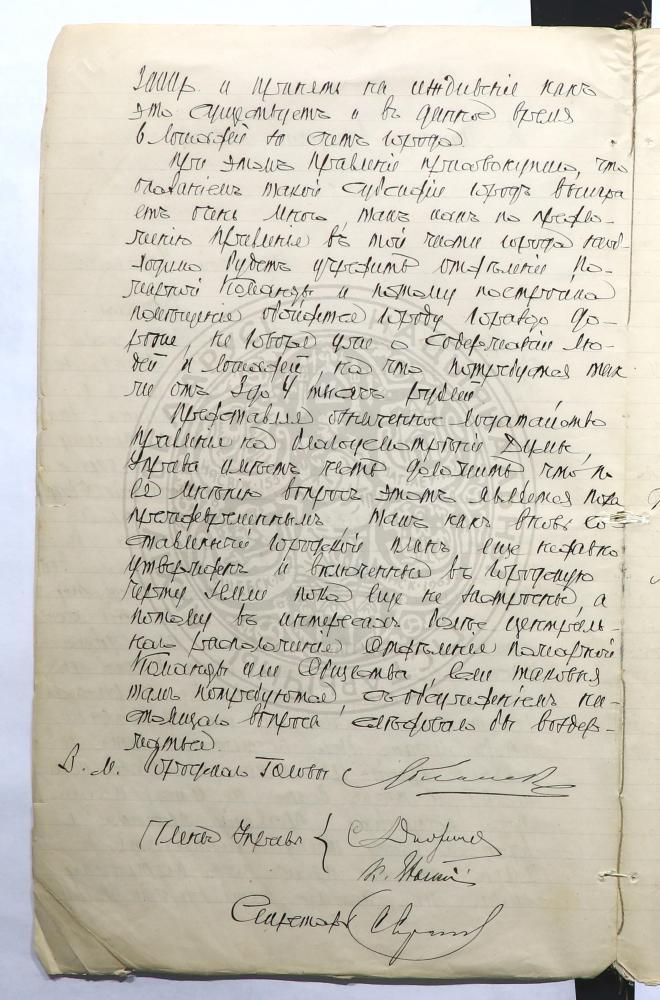 и принять на иждивение какъ
это существуетъ и въ данное время
6 лошадей за счетъ города.
При этомъ Правленіе присовокупило, что
оказаніемъ такой субсидіи городъ выигра
етъ очень много, такъ какъ по предпо-
ложенію Правленія въ той части города необ-
ходимо будетъ учредить отдѣленіе По-
жарной Команды и потому постройка
помѣщенія обойдется городу гораздо до-
роже, не говоря уже о содержаніи лю-
дей и лошадей, на что потребуется так
же отъ 3 до 4 тысячъ рублей.
Представляя означенное ходатайство
Правленія на благоусмотрѣніе Думы,
Управа имѣетъ честь доложить что по
ея мнѣнію вопросъ этотъ является пока
преждевременнымъ такъ какъ вновь со
ставленный городской планъ еще недавно
утвержденъ и включенныя въ городскую
черту земли пока еще не застроены, а
потому въ интересахъ болѣе централь-
наго расположенія Отдѣленія пожарной
Команды или Общества, если таковыя
тамъ потребуются, съ обсужденіемъ на-
стоящаго вопроса слѣдовало бы воздер-
жаться.
В. И. Городского Головы
Члены Управы
Секретарь